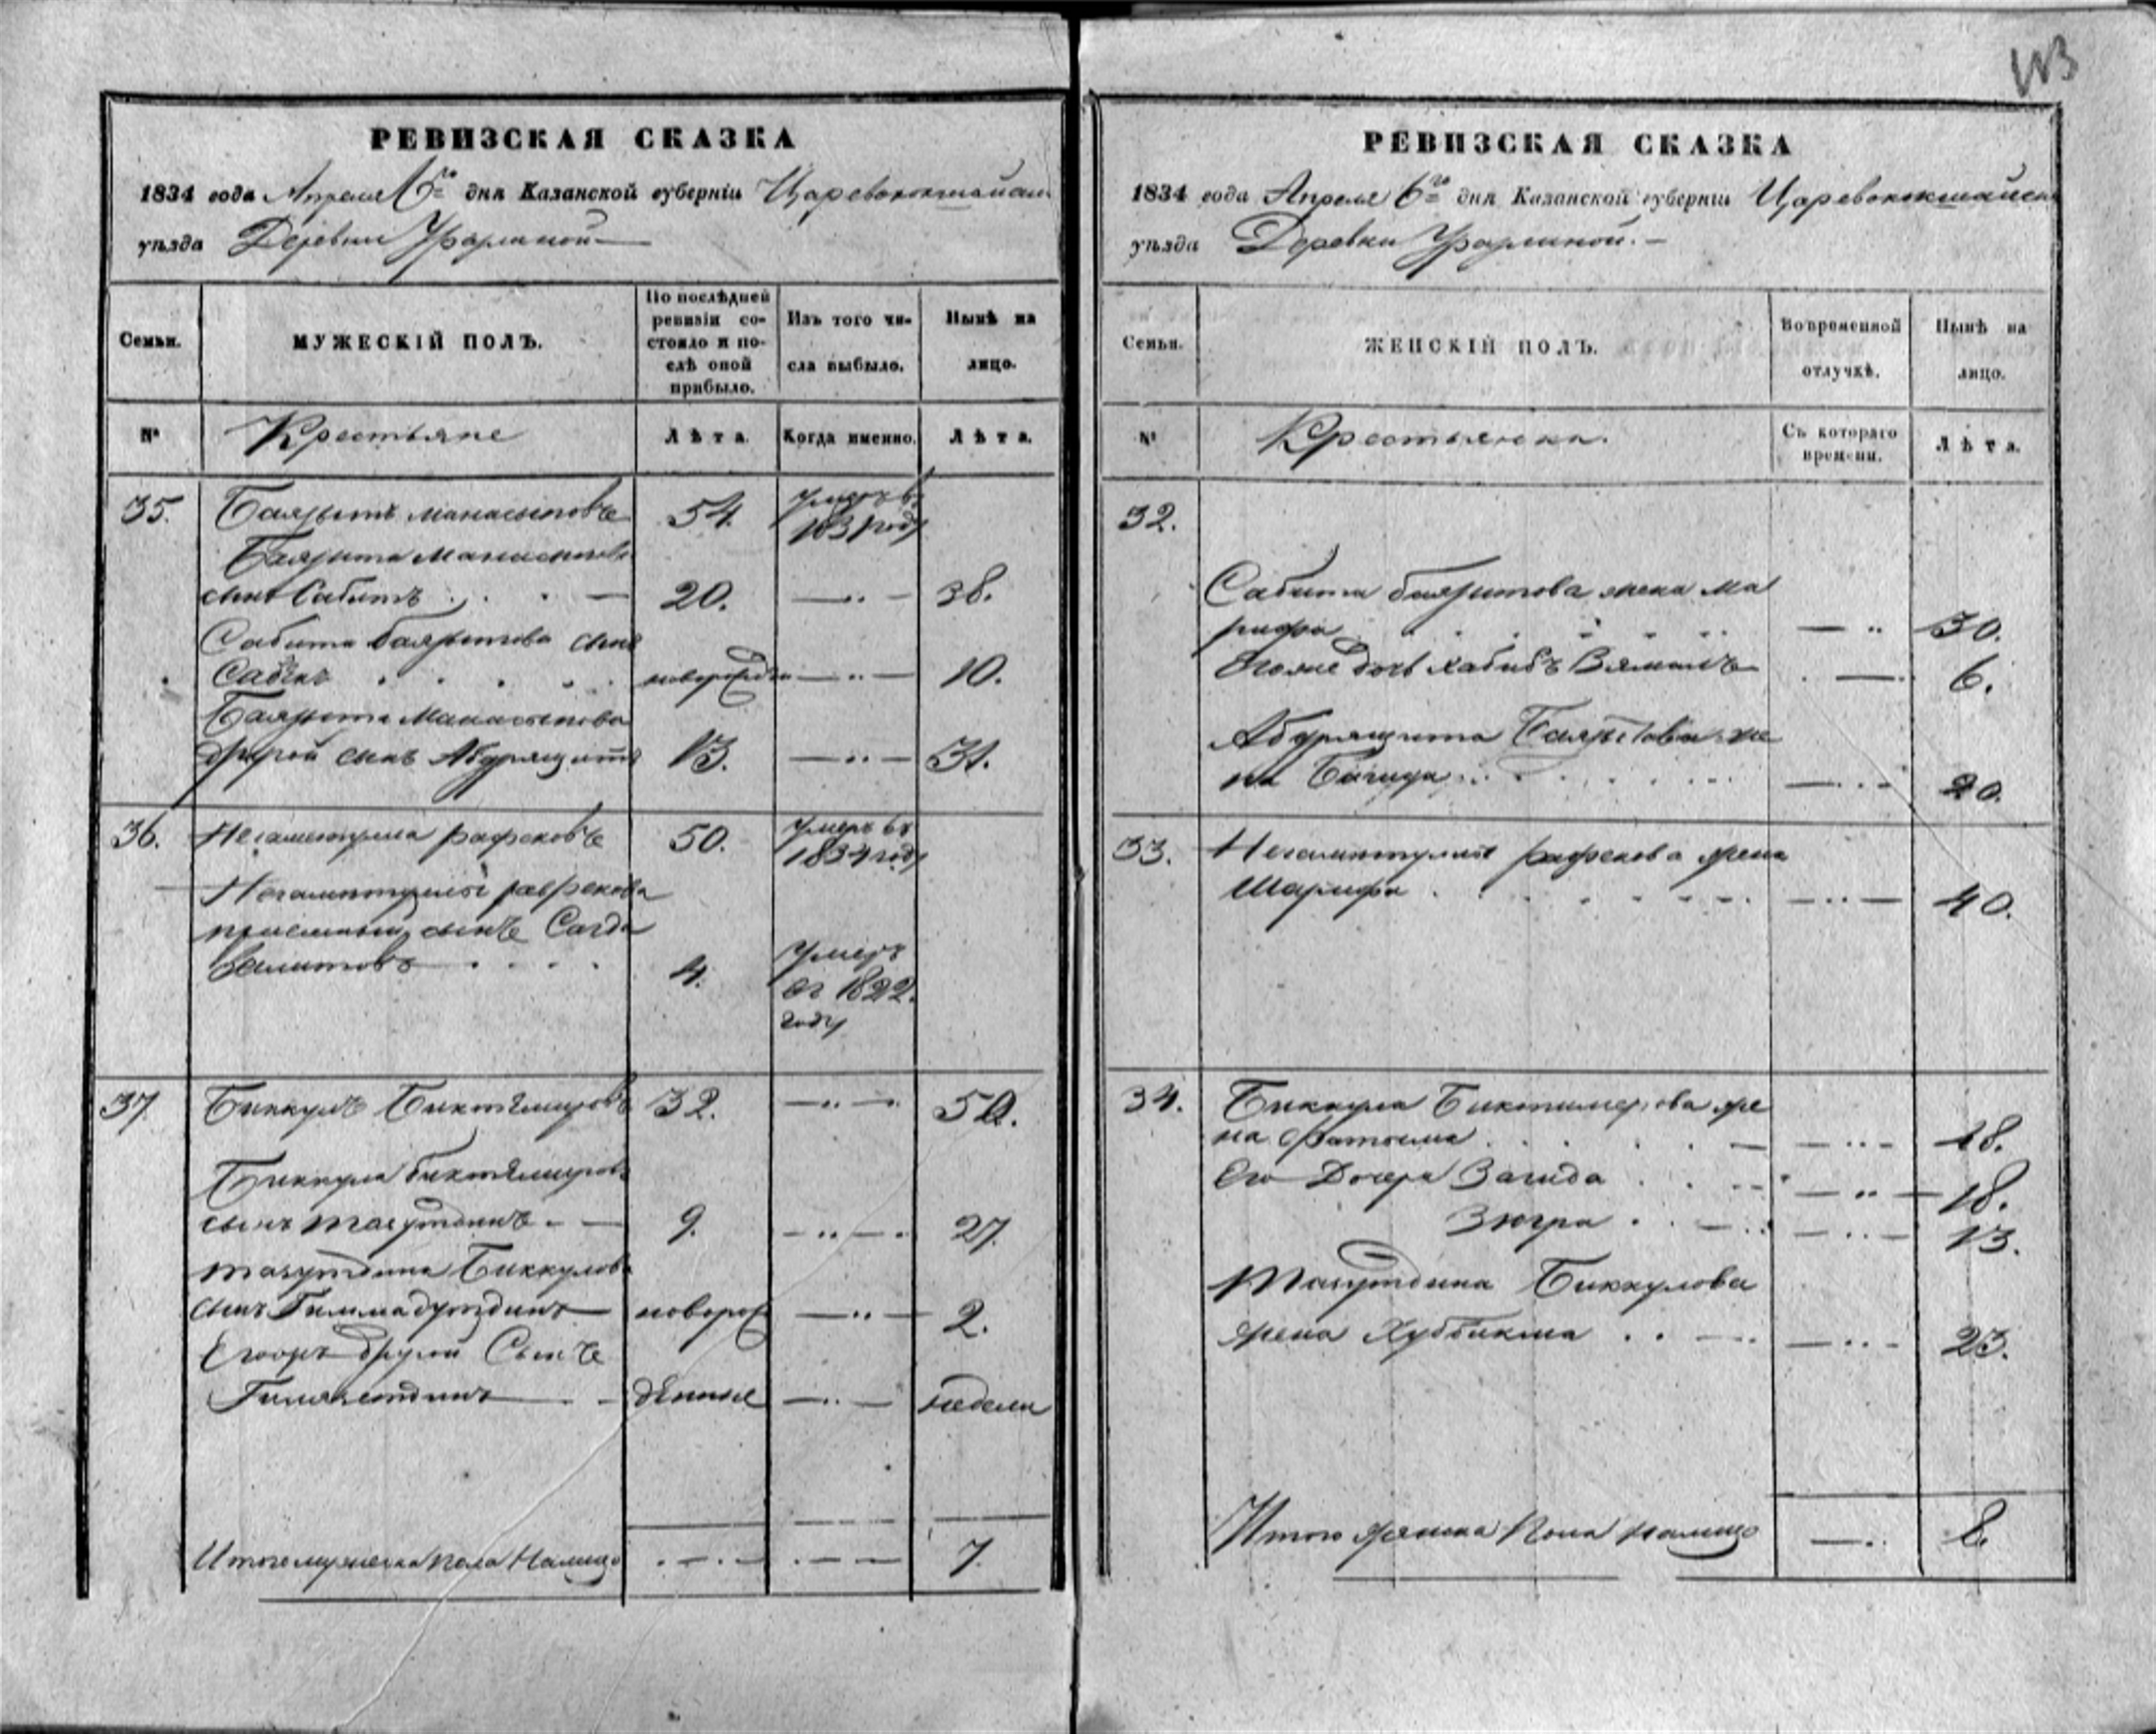 113
РЕВИЗСКАЯ СКАЗКА
1834 года Апреля 6го дня Казанской губерніи Царевококшайск
уѣзда Деревни
Семьи. МУЖЕСКІЙ ПОЛЪ. По послѣдней ревизіи состояло и послѣ оной прибыло. Изъ того числа выбыло. Нынѣ на лицо.
№ Крестьяне Лѣта. Когда именно. Лѣта.
35. Баязитъ Манасыповъ 54. умеръ въ
1831 году
Баязита Манасыпова
сынъ Сабитъ 20. 38.
Сабита Баязитова сынъ
10.
Баязита Манасыпова
другой сынъ Абдрящитъ 13. 31.
36. Негаметулла Рафековъ 50. умеръ въ
1834 году
Негаметуллы Рафекова
приемный сынъ Сагда
Валитовъ 4. умеръ
въ 1822.
году
37. Биккулъ Биктемировъ 32. 50.
Биккула Биктемирова
сынъ Тазутдинъ 9. 27.
Тазутдина Биккулова
сынъ новорож 2.
Его другой Сынъ
денные недели
Итого мужеска пола Налицо 7.
РЕВИЗСКАЯ СКАЗКА
1834 года Апреля 6го дня Казанской губерніи Царевококшайск
уѣзда Деревни
Семьи. ЖЕНСКІЙ ПОЛЪ. Во временной отлучкѣ. Нынѣ на лицо.
№ Крестьянки. Съ котораго времени. Лѣта.
32.
Сабита Баязитова жена Ма
рифа 30.
дочь 6.
Абдрящита Баязитова же
на 20.
33. Негаметуллы Рафекова жена
Шарифа 40.
34. Биккула Биктимерова же
на Фатыма 48.
Его Дочери Загида 18.
Зюгра 13.
Тазутдина Биккулова
жена 23.
Итого женска Пола налицо 8.